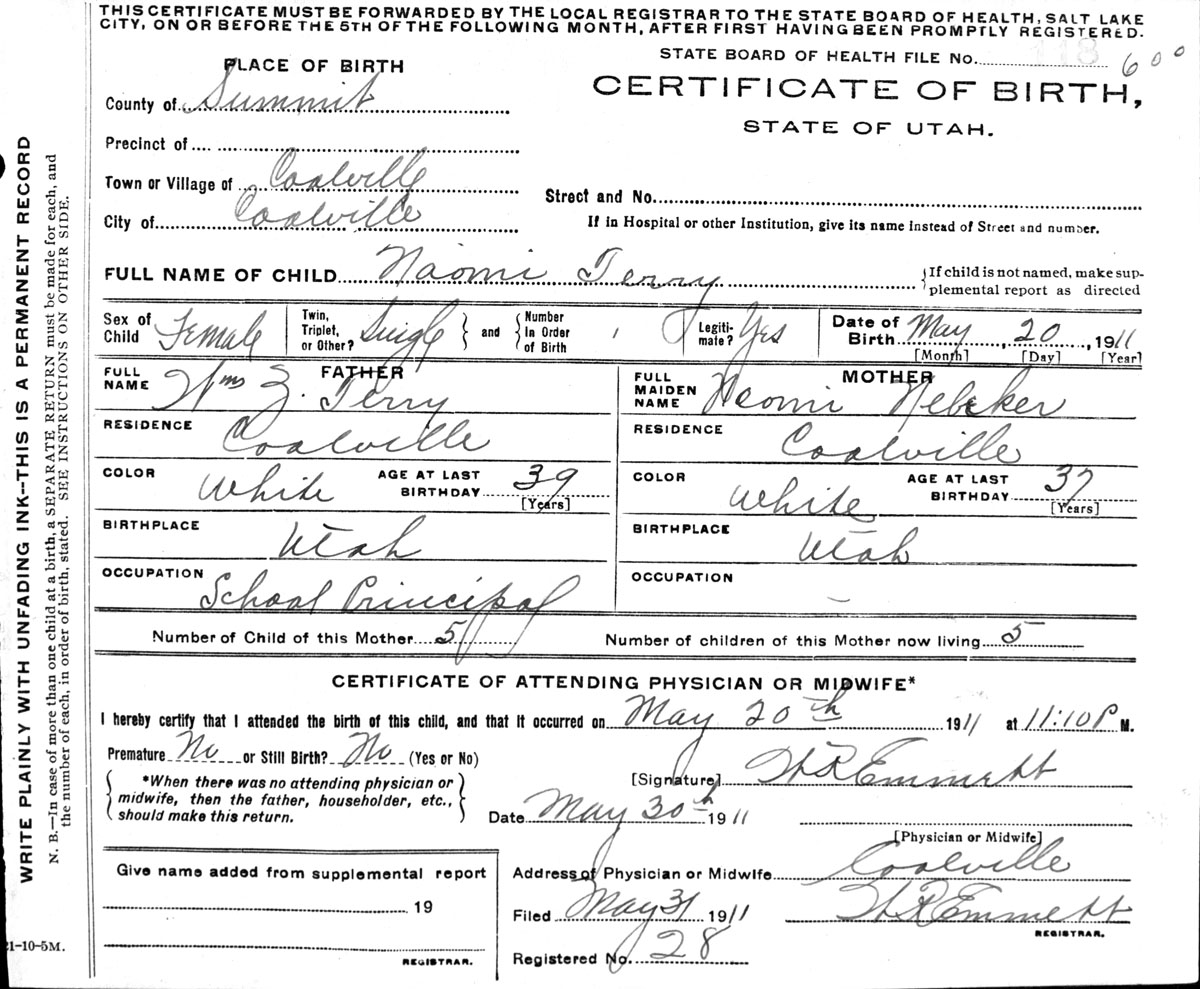 THIS CERTIFICATE MUST BE FORWARDED BY THE LOCAL REGISTRAR TO THE STATE BOARD OF HEALTH, SALT LAKE
CITY, ON OR BEFORE THE 5TH OF THE FOLLOWING MONTH, AFTER FIRST HAVING BEEN PROMPTLY REGISTERED.
STATE BOARD OF HEALTH FILE No. 118 600
PLACE OF BIRTH
CERTIFICATE OF BIRTH,
STATE OF UTAH.
County of Summit
Precinct of
Town or Village of Coalville
City of Coalville
Street and No.
If in Hospital or other Institution, give its name instead of Street and number.
FULL NAME OF CHILD Naomi Terry
{If child is not named, make sup-
plemental report as directed
Sex of Child Female
Twin, Triplet, or Other? Single } and { Number in Order of Birth
Legiti- mate? Yes
Date of Birth May, 20, 1911
[Month] [Day] [Year]
FATHER
FULL NAME Wms Z. Terry
RESIDENCE Coalville
COLOR White AGE AT LAST BIRTHDAY 39
[Years]
BIRTHPLACE Utah
OCCUPATION School Principal
MOTHER
FULL MAIDEN NAME Neomi Nebeker
RESIDENCE Coalville
COLOR White AGE AT LAST BIRTHDAY 37
[Years]
BIRTHPLACE Utah
OCCUPATION —
Number of Child of this Mother 5 Number of children of this Mother now living 5
CERTIFICATE OF ATTENDING PHYSICIAN OR MIDWIFE*
I hereby certify that I attended the birth of this child, and that it occurred on May 20th 1911 at 11:10 P M.
Premature No or Still Birth? No (Yes or No)
{ *When there was no attending physician or
midwife, then the father, householder, etc.,
should make this return. }
[Signature] Emmett
Date May 30th 1911
[Physician or Midwife]
Address of Physician or Midwife Coalville
Filed May 31 1911 Emmett
REGISTRAR.
Registered No. 28
Give name added from supplemental report
19
REGISTRAR.
21-10-5M.
WRITE PLAINLY WITH UNFADING INK--THIS IS A PERMANENT RECORD
N. B.—In case of more than one child at a birth, a SEPARATE RETURN must be made for each, and
the number of each, in order of birth, stated. SEE INSTRUCTIONS ON OTHER SIDE.